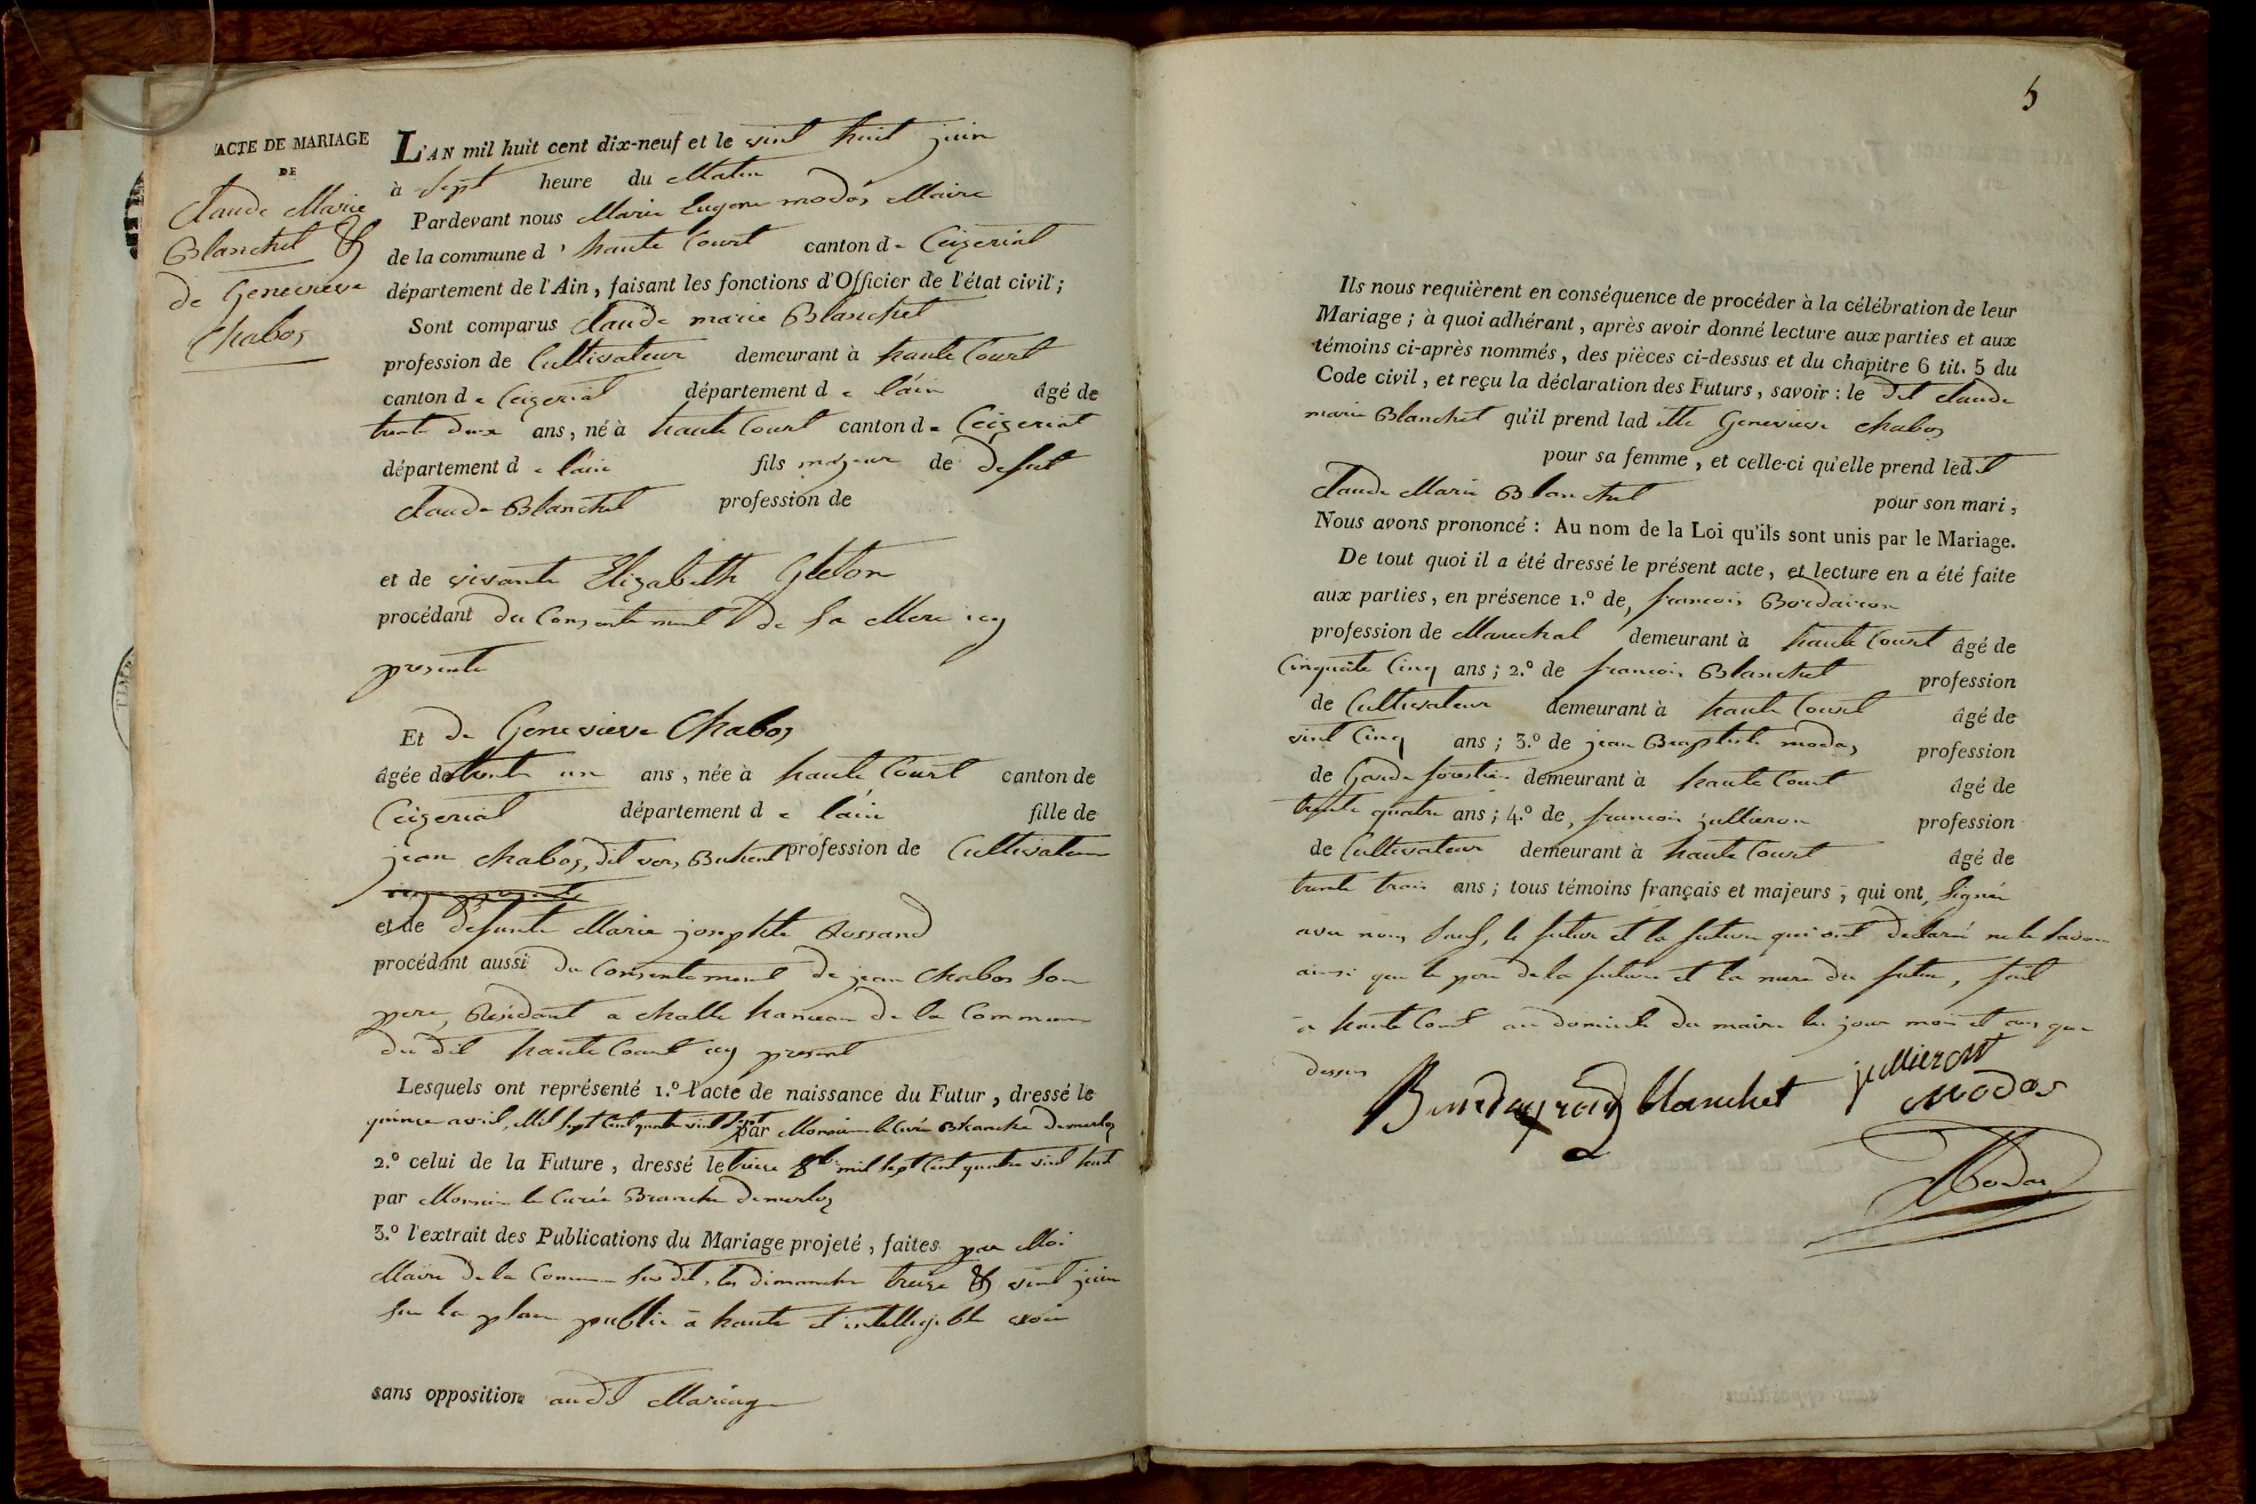 ACTE DE MARIAGE
DE
Claude Marie
Blanchet &
de Genevieve
Chabos
L'AN mil huit cent dix-neuf et le vint huit juin
à sept heure du Matin
Pardevant nous Marie Eugene modas Maire
de la commune d'haute Court canton de Ceizeriat
département de l'Ain, faisant les fonctions d'Officier de l'état civil;
Sont comparus Claude marie Blanchet
profession de Cultivateur demeurant à haute Court
canton de Ceizeriat département de l'ain âgé de
trente deux ans, né à haute Court canton de Ceizeriat
département de l'ain fils majeur de defunt
Claude Blanchet profession de
et de vivante Elizabeth Gleton
procédant du Consentement de Sa Mere icy
presente
Et de Genevieve Chabos
âgée de trente un ans, née à haute Court canton de
Ceizeriat département de l'ain fille de
jean chabos, dit vers Buhent profession de Cultivateur
et de defunte Marie josephte Rossand
procédant aussi du Consentement de jean Chabos son
pere, Résidant a challe hameau de la Commune
du dit haute Court icy present
Lesquels ont représenté 1.º l'acte de naissance du Futur, dressé le
quinze avril, Mil sept Cent quatre vint sept par Monsieur le Curé Branche
2.º celui de la Future, dressé le treize 8bre mil sept Cent quatre vint
par Monsieur le Curée Branche
3.º l'extrait des Publications du Mariage projeté, faites par Moi
Maire de la Commune susdit, les dimanches treize & vint juin
sur la place public à haute et intelligible voix
sans opposition audit Mariage
5
Ils nous requièrent en conséquence de procéder à la célébration de leur
Mariage; à quoi adhérant, après avoir donné lecture aux parties et aux
témoins ci-après nommés, des pièces ci-dessus et du chapitre 6 tit. 5 du
Code civil, et reçu la déclaration des Futurs, savoir: le dit Claude
marie Blanchet qu'il prend laditte Genevieve chabos
pour sa femme, et celle-ci qu'elle prend ledit
Claude Marie Blanchet pour son mari,
Nous avons prononcé: Au nom de la Loi qu'ils sont unis par le Mariage.
De tout quoi il a été dressé le présent acte, et lecture en a été faite
aux parties, en présence 1.º de, francois Bordairon
profession de Marechal demeurant à haute Court âgé de
Cinquate Cinq ans; 2.º de francois Blanchet profession
de Cultivateur demeurant à haute Court âgé de
vint Cinq ans; 3.º de jean Baptiste modas profession
de Garde forestier demeurant à haute Court âgé de
trente quatre ans; 4.º de, francois jullieron profession
de Cultivateur demeurant à haute Court âgé de
trente trois ans; tous témoins français et majeurs, qui ont, Signée
avec nous Sauf, le futur et la future qui ont declaré ne le savoir
ainsi que le pere de la future et la mere du futur, fait
a haute Court au domicile du maire les jour mois et ans que
dessus
blanchet
jullieront
Modas
Modas